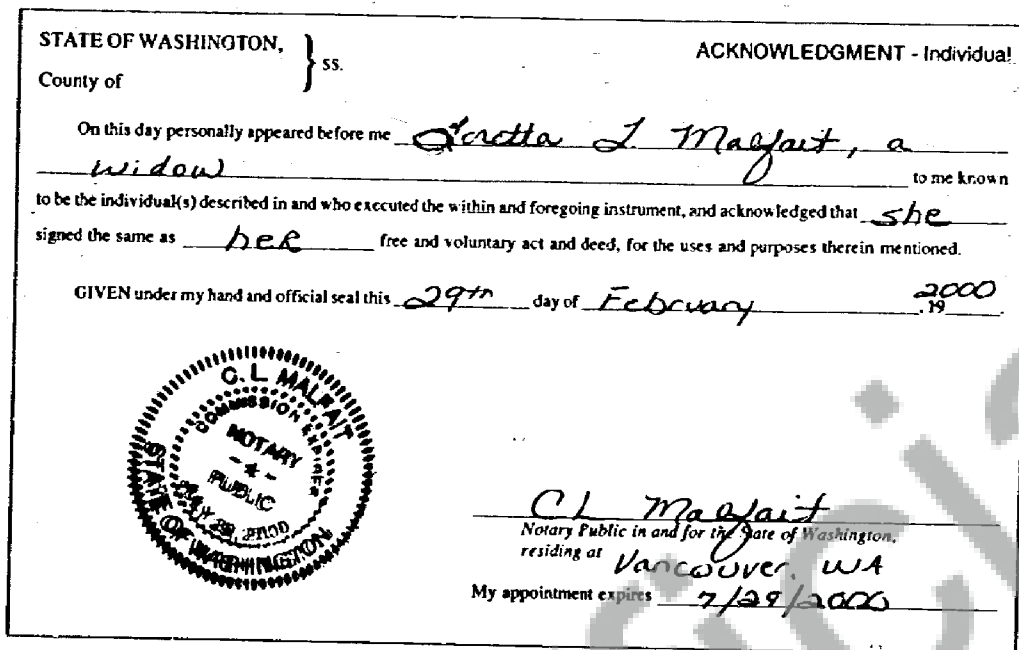 STATE OF WASHINGTON,
County of
} ss.
ACKNOWLEDGMENT - Individual
On this day personally appeared before me Loretta L Malfait, a
widow to me known
to be the individual(s) described in and who executed the within and foregoing instrument, and acknowledged that she
signed the same as her free and voluntary act and deed, for the uses and purposes therein mentioned.
GIVEN under my hand and official seal this 29th day of February 2000
, 19
C. L. MALFAIT
COMMISSION EXPIRES
NOTARY
PUBLIC
2000
STATE OF WASHINGTON
CL Malfait
Notary Public in and for the State of Washington,
residing at Vancouver, WA
My appointment expires 7/29/2000